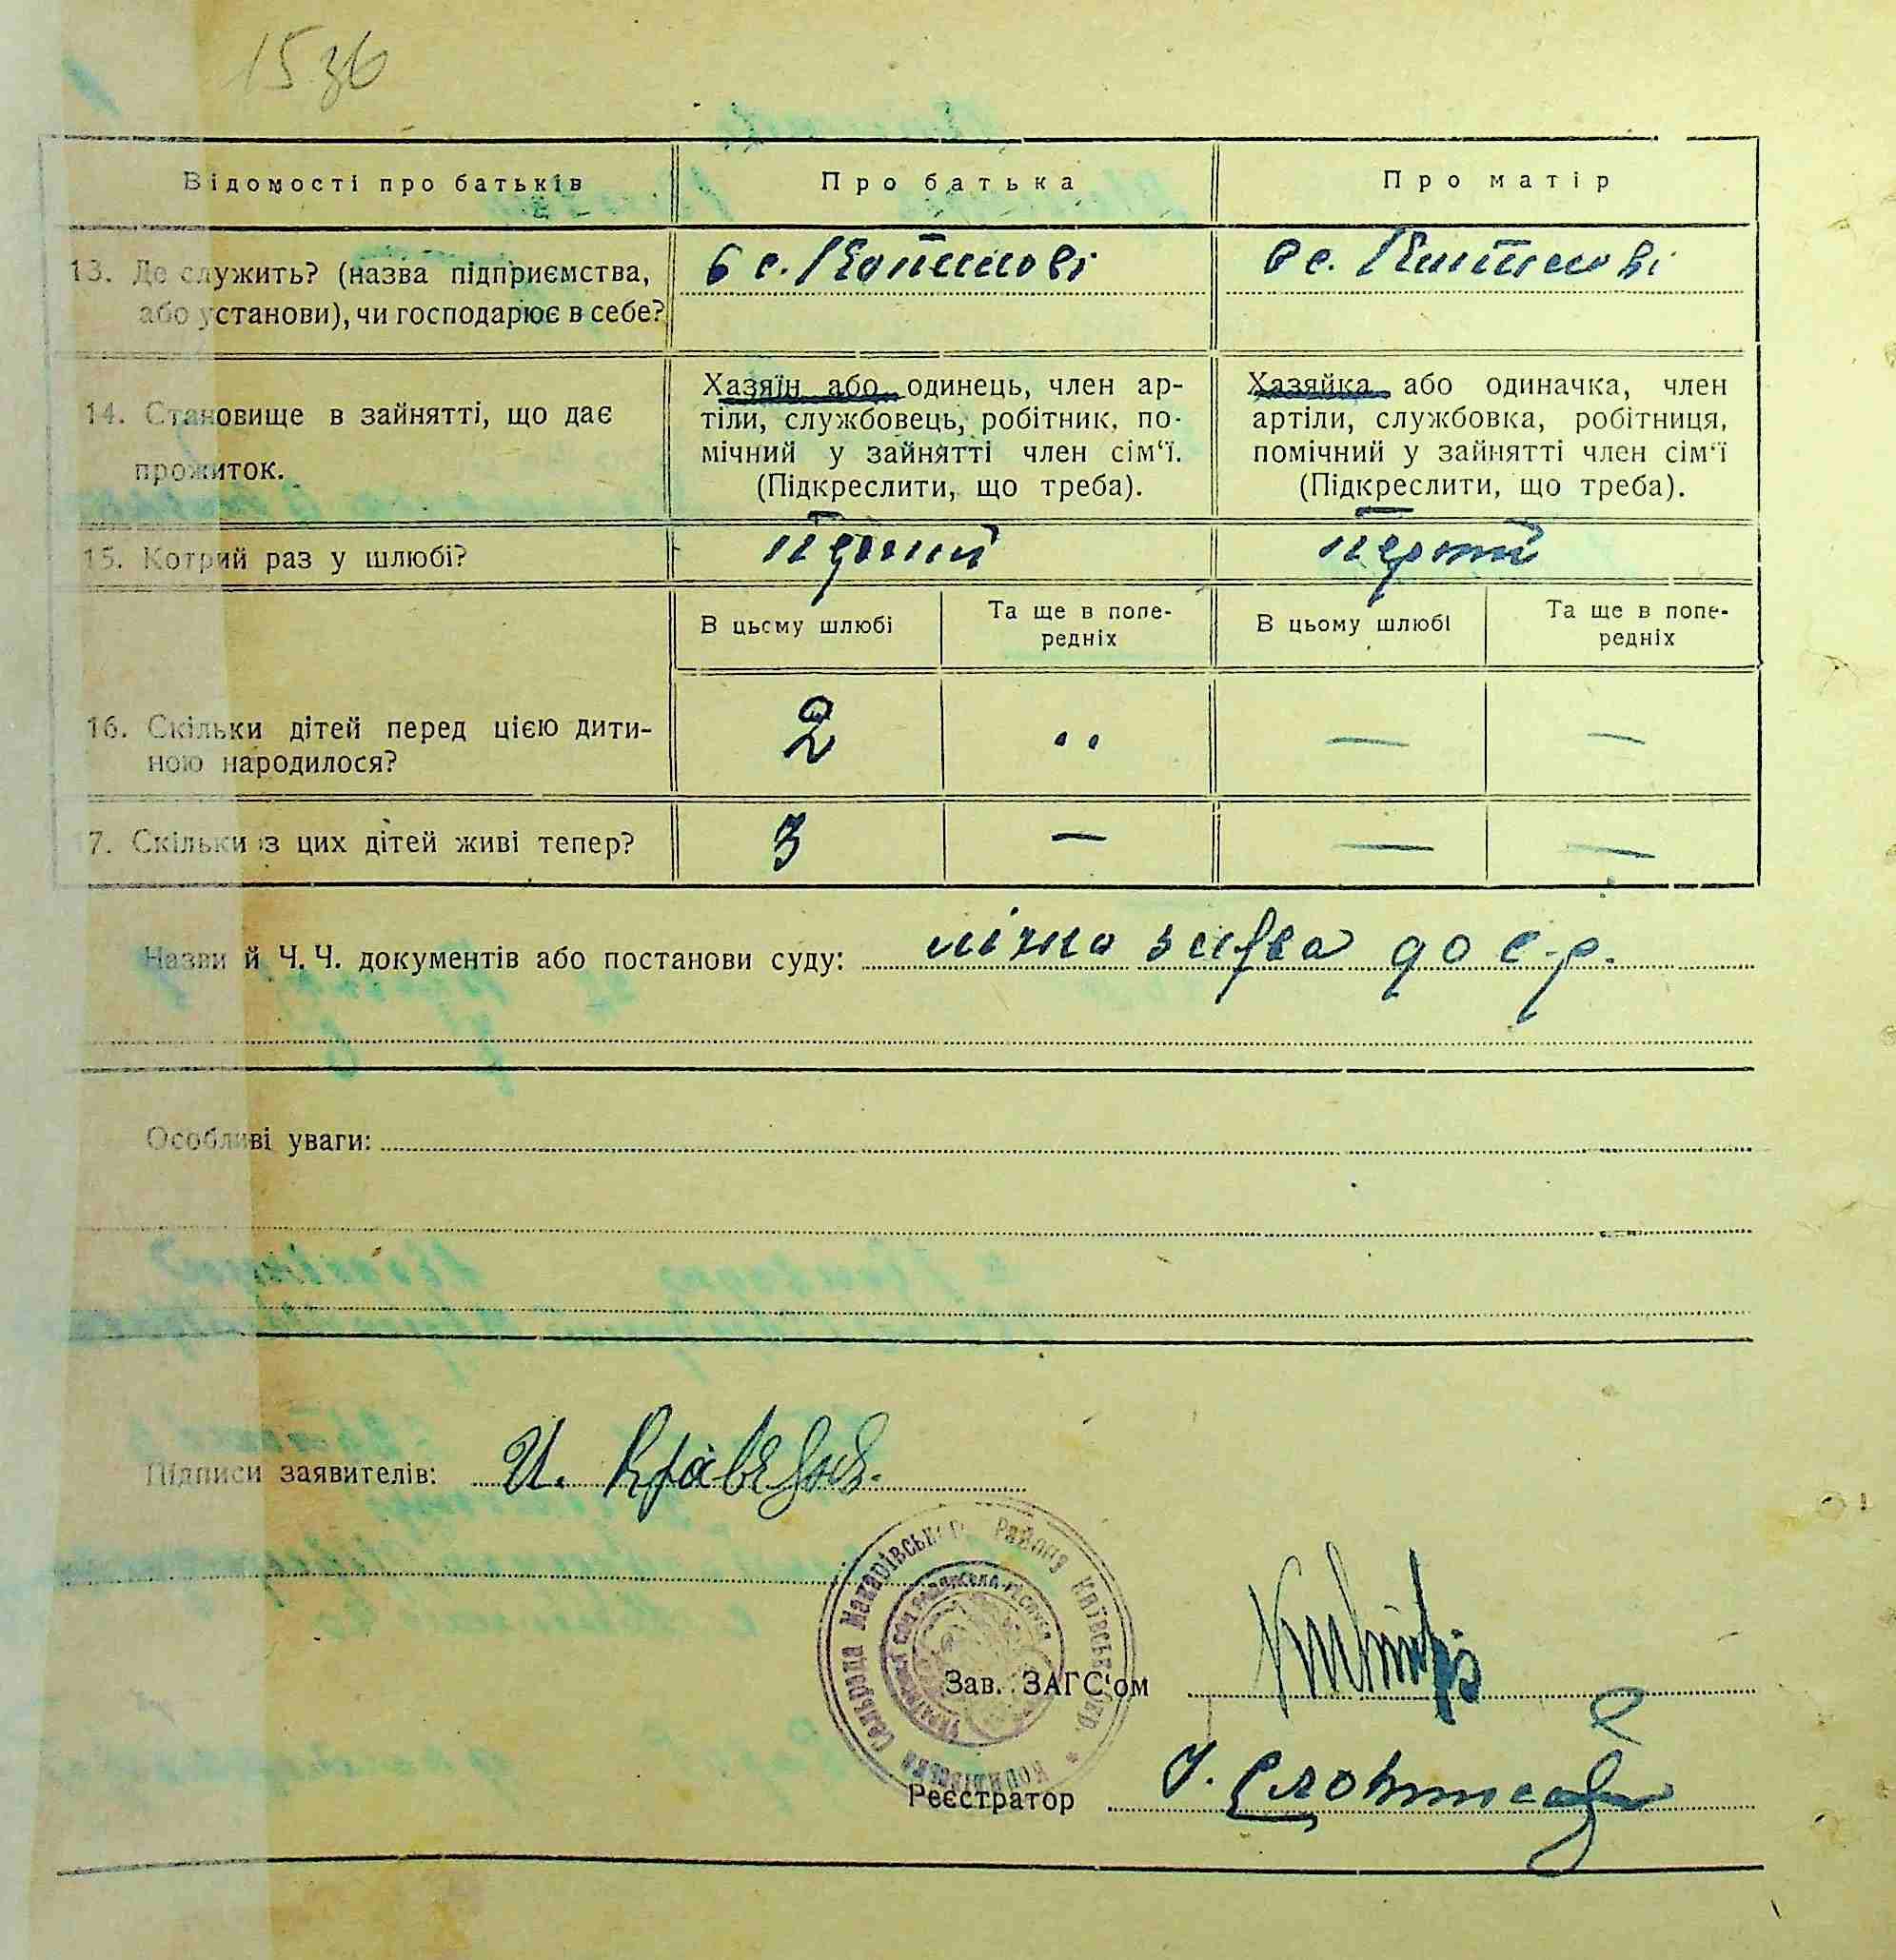 1536
Відомості про батьків
Про батька
Про матір
13. Де служить? (назва підприємства,
або установи), чи господарює в себе?
в с.
в с.
14. Становище в зайнятті, що дає
прожиток.
Хазяїн або одинець, член ар-
тіли, службовець, робітник, по-
мічний у зайнятті член сім'ї.
(Підкреслити, що треба).
Хазяйка або одиначка, член
артіли, службовка, робітниця,
помічний у зайнятті член сім'ї
(Підкреслити, що треба).
15. Котрий раз у шлюбі?
перший
перший
В цьому шлюбі
Та ще в попе-
редніх
В цьому шлюбі
Та ще в попе-
редніх
16. Скільки дітей перед цією дити-
ною народилося?
2
" — —
17. Скільки із цих дітей живі тепер?
3 — — —
Назви й Ч. Ч. документів або постанови суду: до с-р.
Особливі уваги:
Підписи заявителів: И.
Макарівського Району Київської
Зав. ЗАГС'ом
Реєстратор